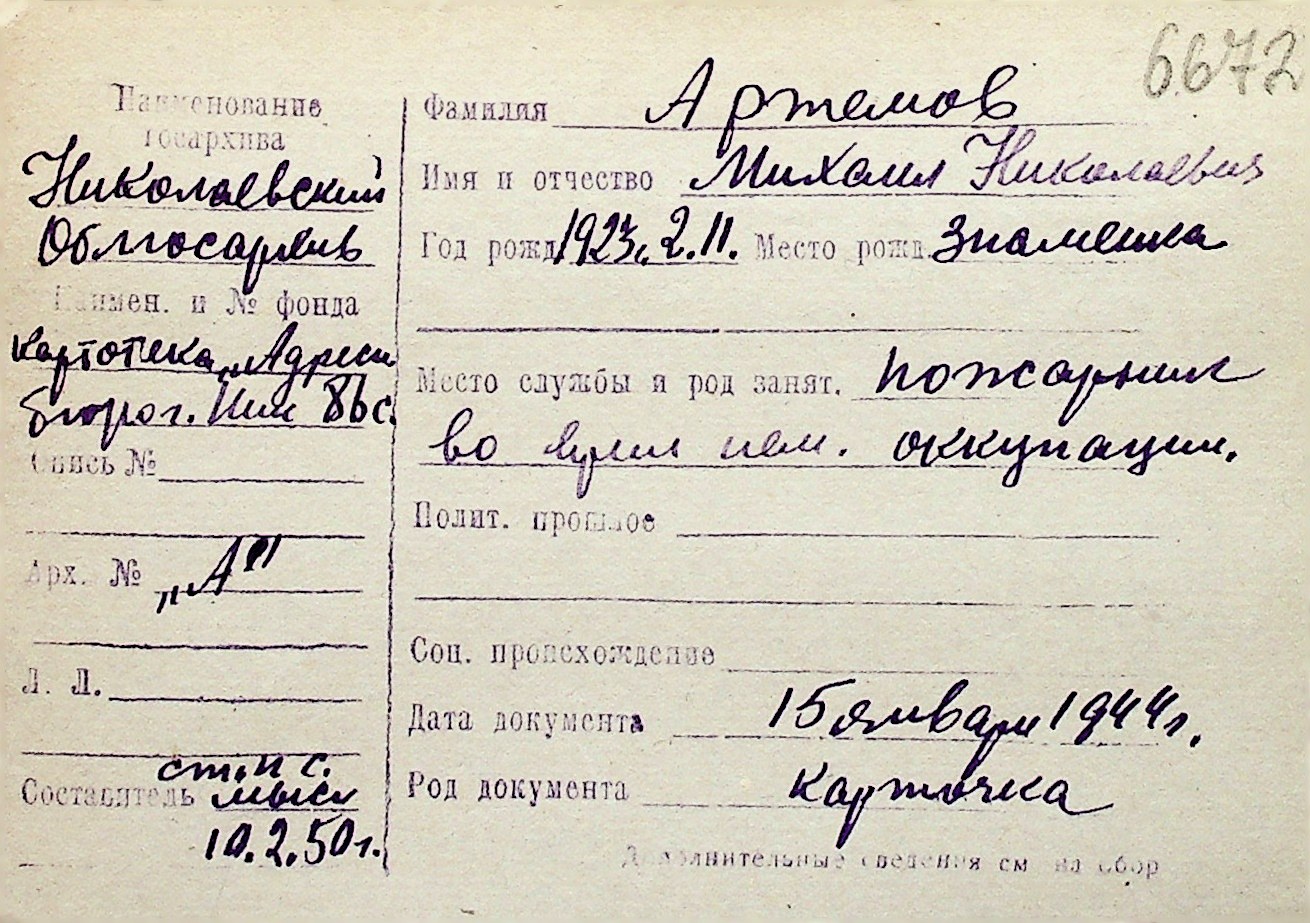 6672
Наименование
госархива
Николаевский
Облгосархив
Наимен. и № фонда
картотека „Адресн.
бюро г. Ник
Опись №
Арх. № „А"
Л. Л.
ст. н с.
Составитель
10.2.50 г.
Фамилия Артемов
Имя и отчество Михаил Николаевич
Год рожд 1923, 2.11. Место рожд. Знаменка
Место службы и род занят. пожарник
во время нем. оккупации.
Полит. прошлое
Соц. происхождение
Дата документа 15 января 1944 г.
Род документа карточка
Дополнительные сведения см на обор